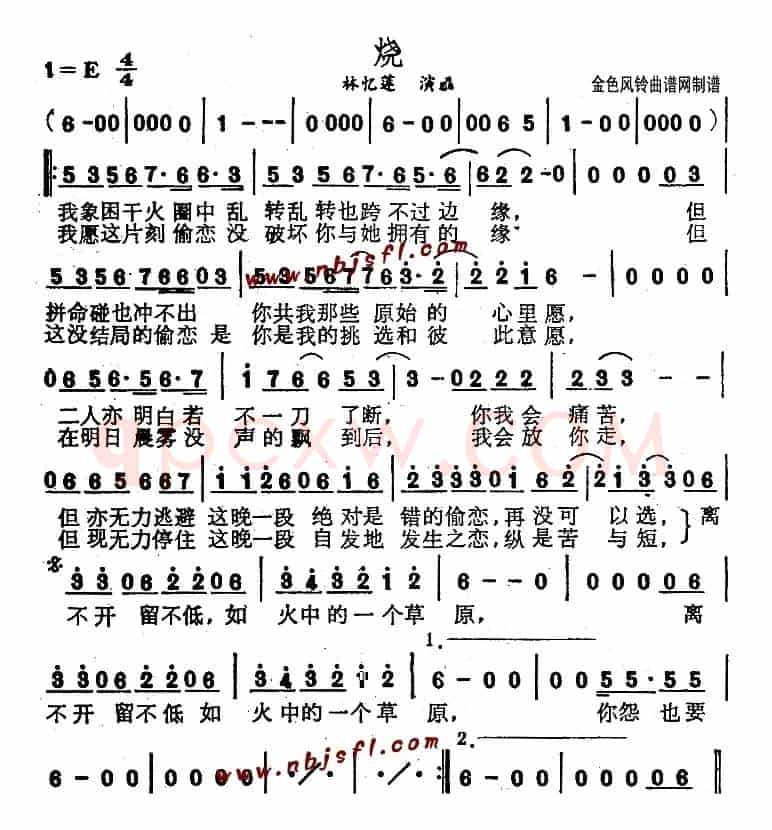 烧
1=E 4/4
林忆莲 演唱
金色风铃曲谱网制谱
(6-00|0000|1---|0000|6-00|0065|1-00|0000)
53567·66·3|53567·65·6|622-0|000003
我象困干火圈中乱 转乱转也跨不过边 缘， 但
我愿这片刻偷恋没 破坏你与她拥有的 缘 但
www.nbjsfl.com
535676603|53567763·2|2216-|0000
拼命碰也冲不出 你共我那些 原始的 心里愿，
这没结局的偷恋 是 你是我的挑 选和彼 此意愿，
0656·56·7|176653|3-0222|233-
二人亦明白若 不一刀 了断， 你我会 痛苦，
在明日晨雾没 声的飘 到后， 我会放 你走，
qpcxw.com
066566 7|11260612|2330162|123306
但亦无力逃避 这晚一段 绝对是 错的偷恋，再没可 以选， 离
但现无力停住 这晚一段 自发地 发生之恋，纵是苦 与短，
33062206|343212|6-00|000006
不开 留不低，如 火中的一个草 原， 离
1.
33062206|343212|6-00|0055·55
不开 留不低 如 火中的一个草 原， 你怨也要
www.nbjsfl.com
2.
6-00|0000|·/·|·/·:|6-00|000006